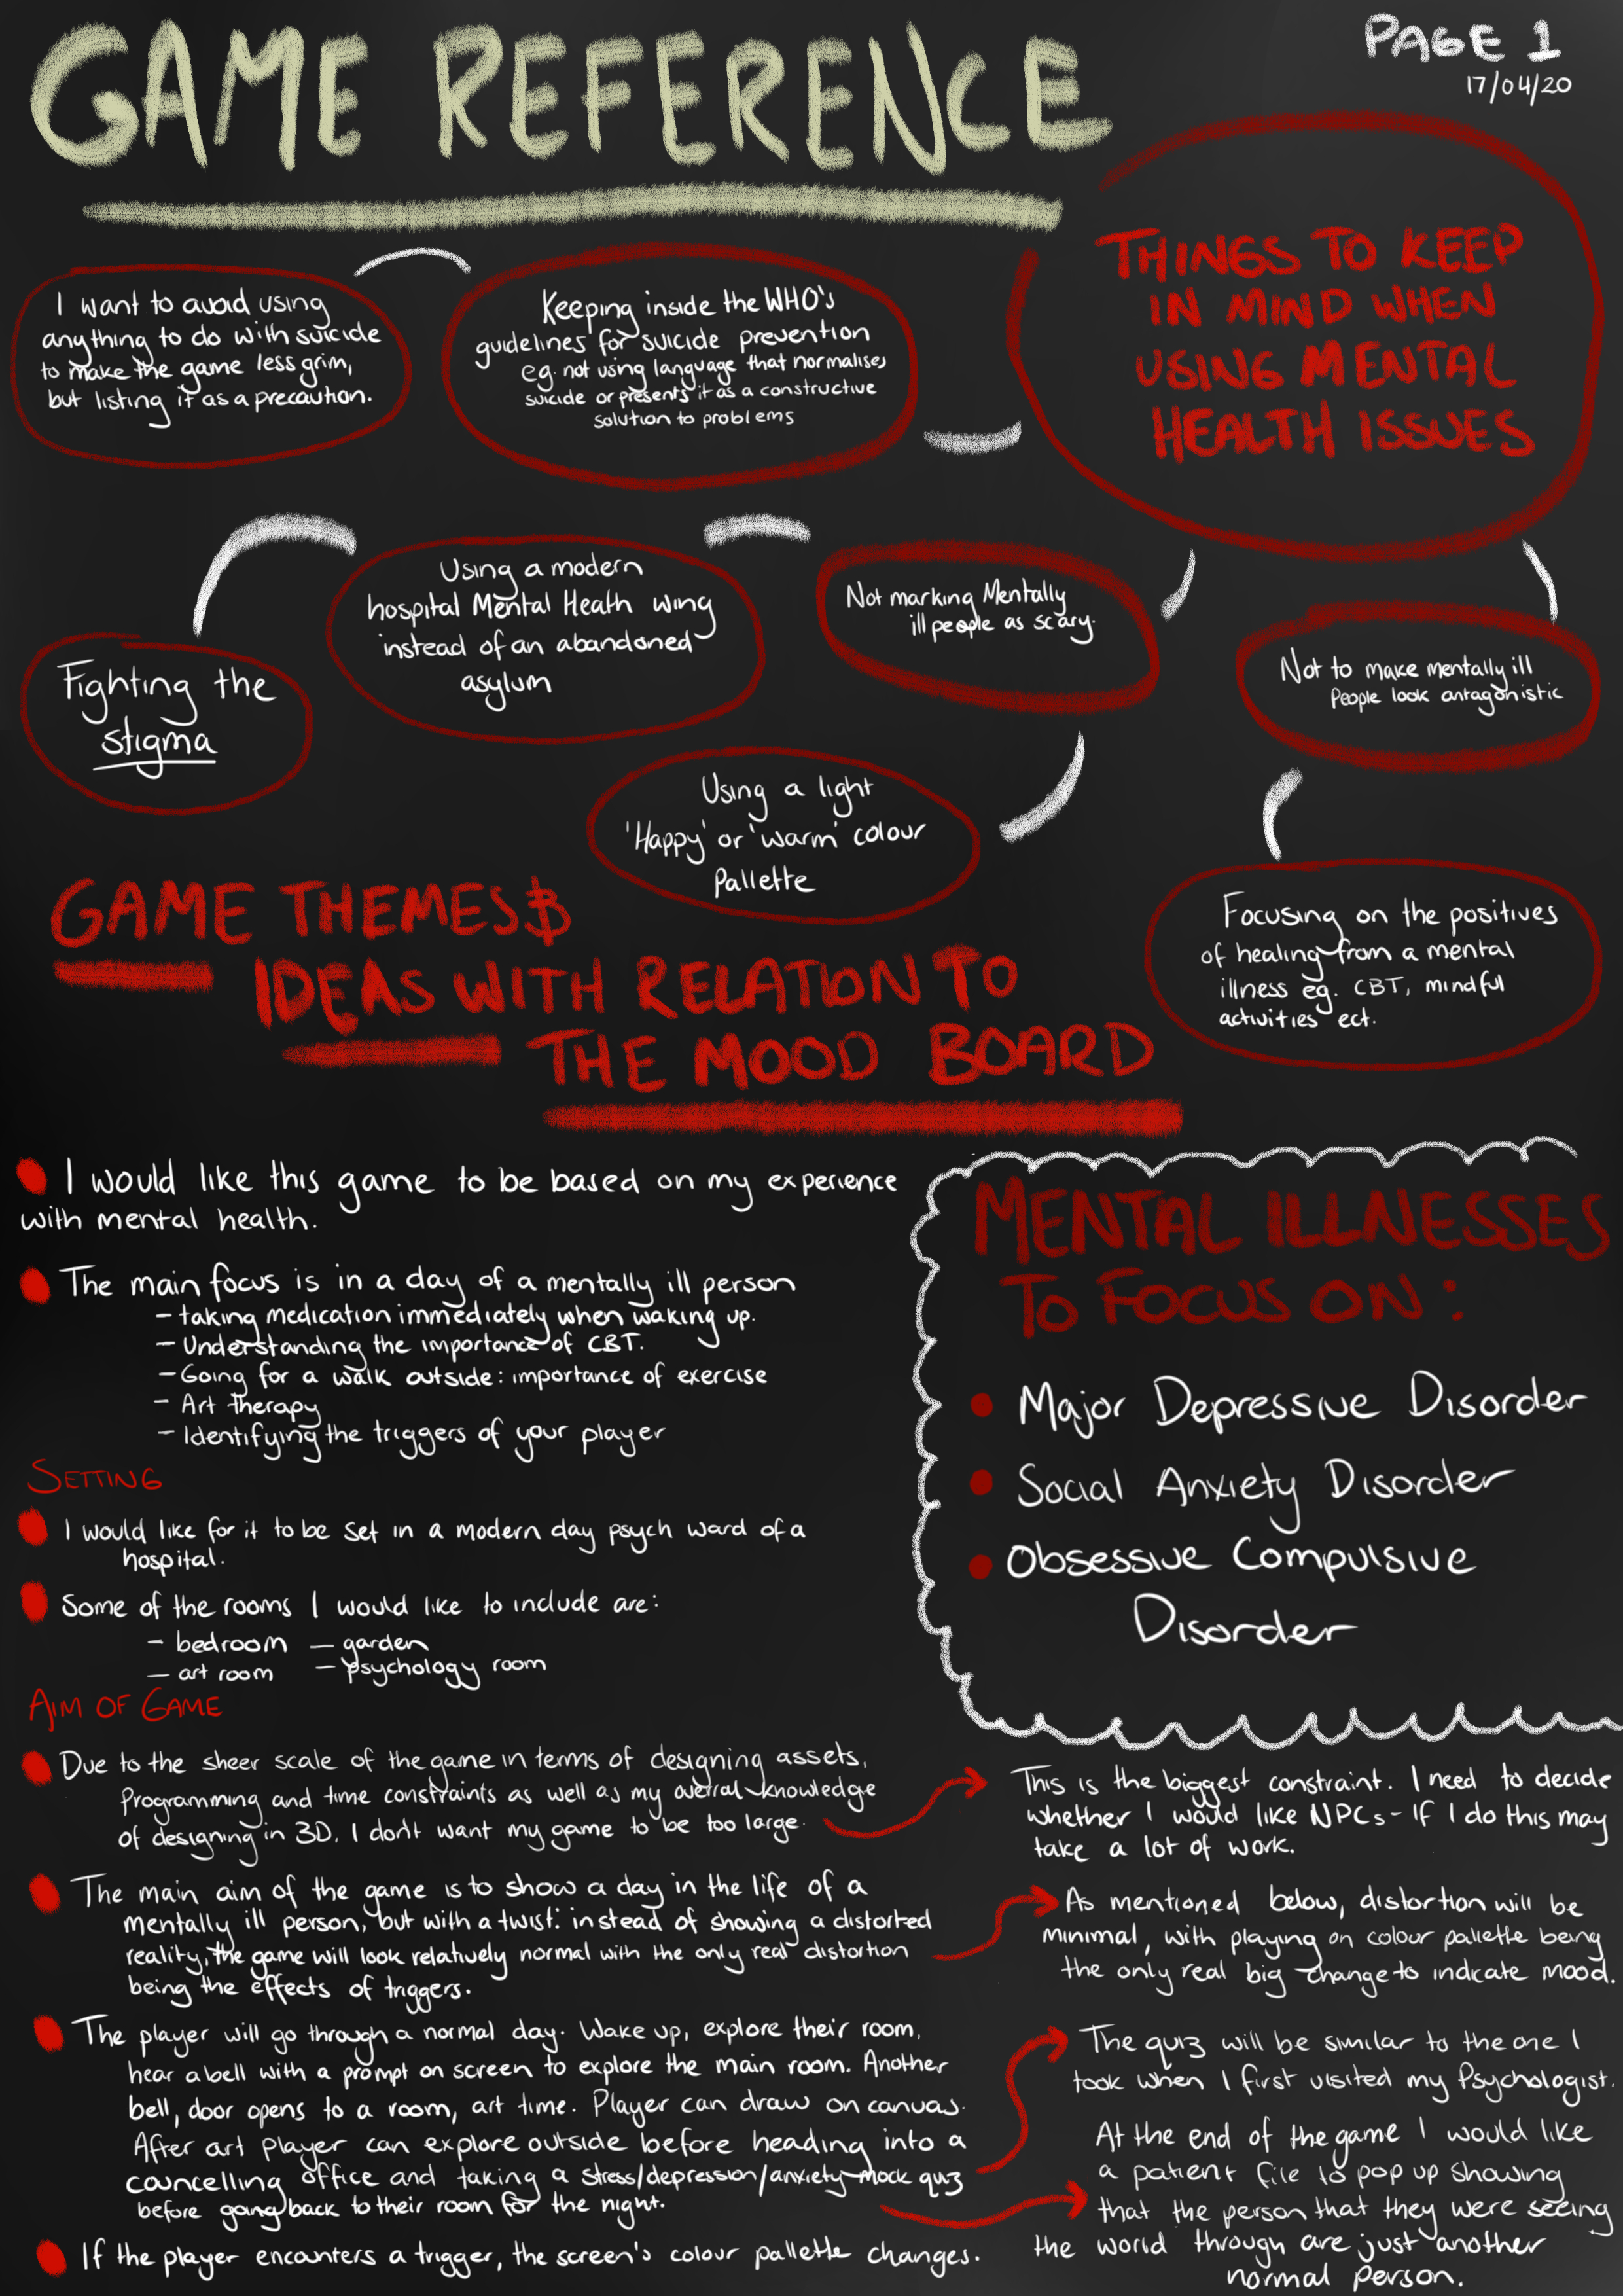 GAME REFERENCE
PAGE 1
17/04/20
THINGS TO KEEP
IN MIND WHEN
USING MENTAL
HEALTH ISSUES
I want to avoid using
anything to do with suicide
to make the game less grim,
but listing it as a precaution.
Keeping inside the WHO's
guidelines for suicide prevention
eg. not using language that normalises
suicide or presents it as a constructive
solution to problems
Using a modern
hospital Mental Heath wing
instead of an abandoned
asylum
Not marking Mentally
ill people as scary.
Not to make mentally ill
People look antagonistic
Fighting the
stigma
Using a light
'Happy' or 'warm' colour
Pallette
Focusing on the positives
of healing from a mental
illness eg. CBT, mindful
activities ect.
GAME THEMES &
IDEAS WITH RELATION TO
THE MOOD BOARD
I would like this game to be based on my experience
with mental health.
The main focus is in a day of a mentally ill person
- taking medication immediately when waking up.
- Understanding the importance of CBT.
- Going for a walk outside: importance of exercise
- Art therapy
- Identifying the triggers of your player
SETTING
I would like for it to be set in a modern day psych ward of a
hospital.
Some of the rooms I would like to include are:
- bedroom - garden
- art room - psychology room
MENTAL ILLNESSES
TO FOCUS ON:
Major Depressive Disorder
Social Anxiety Disorder
Obsessive Compulsive
Disorder
AIM OF GAME
Due to the sheer scale of the game in terms of designing assets,
Programming and time constraints as well as my overral knowledge
of designing in 3D, I don't want my game to be too large.
This is the biggest constraint. I need to decide
whether I would like NPCs - If I do this may
take a lot of work.
The main aim of the game is to show a day in the life of a
mentally ill person, but with a twist: instead of showing a distorted
reality, the game will look relatively normal with the only real distortion
being the effects of triggers.
As mentioned below, distortion will be
minimal, with playing on colour pallette being
the only real big change to indicate mood.
The player will go through a normal day. Wake up, explore their room,
hear a bell with a prompt on screen to explore the main room. Another
bell, door opens to a room, art time. Player can draw on canvas.
After art player can explore outside before heading into a
councelling office and taking a stress/depression/anxiety mock quiz
before going back to their room for the night.
The quiz will be similar to the one I
took when I first visited my Psychologist.
At the end of the game I would like
a patient file to pop up showing
that the person that they were seeing
the world through are just another
normal person.
If the player encounters a trigger, the screen's colour pallette changes.